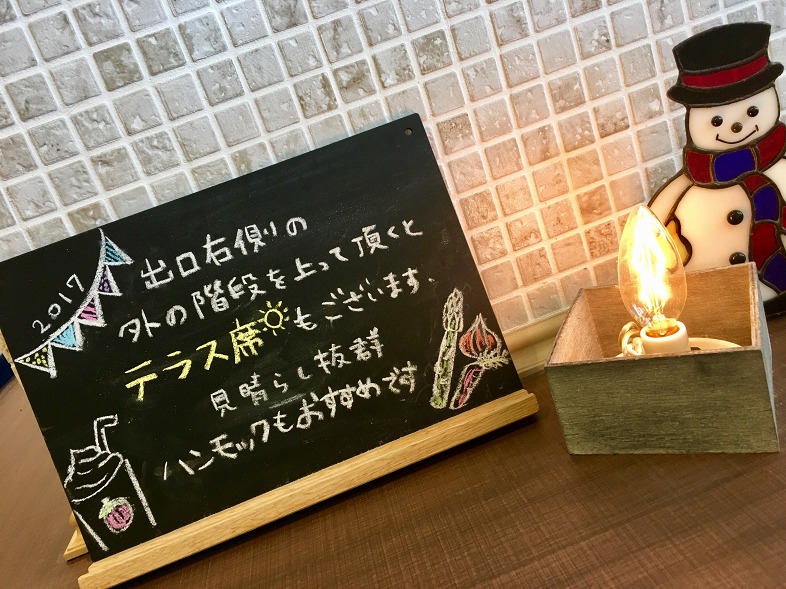 2017
出口右側の
外の階段を上って頂くと
テラス席もございます.
見晴らし抜群
ハンモックもおすすめです